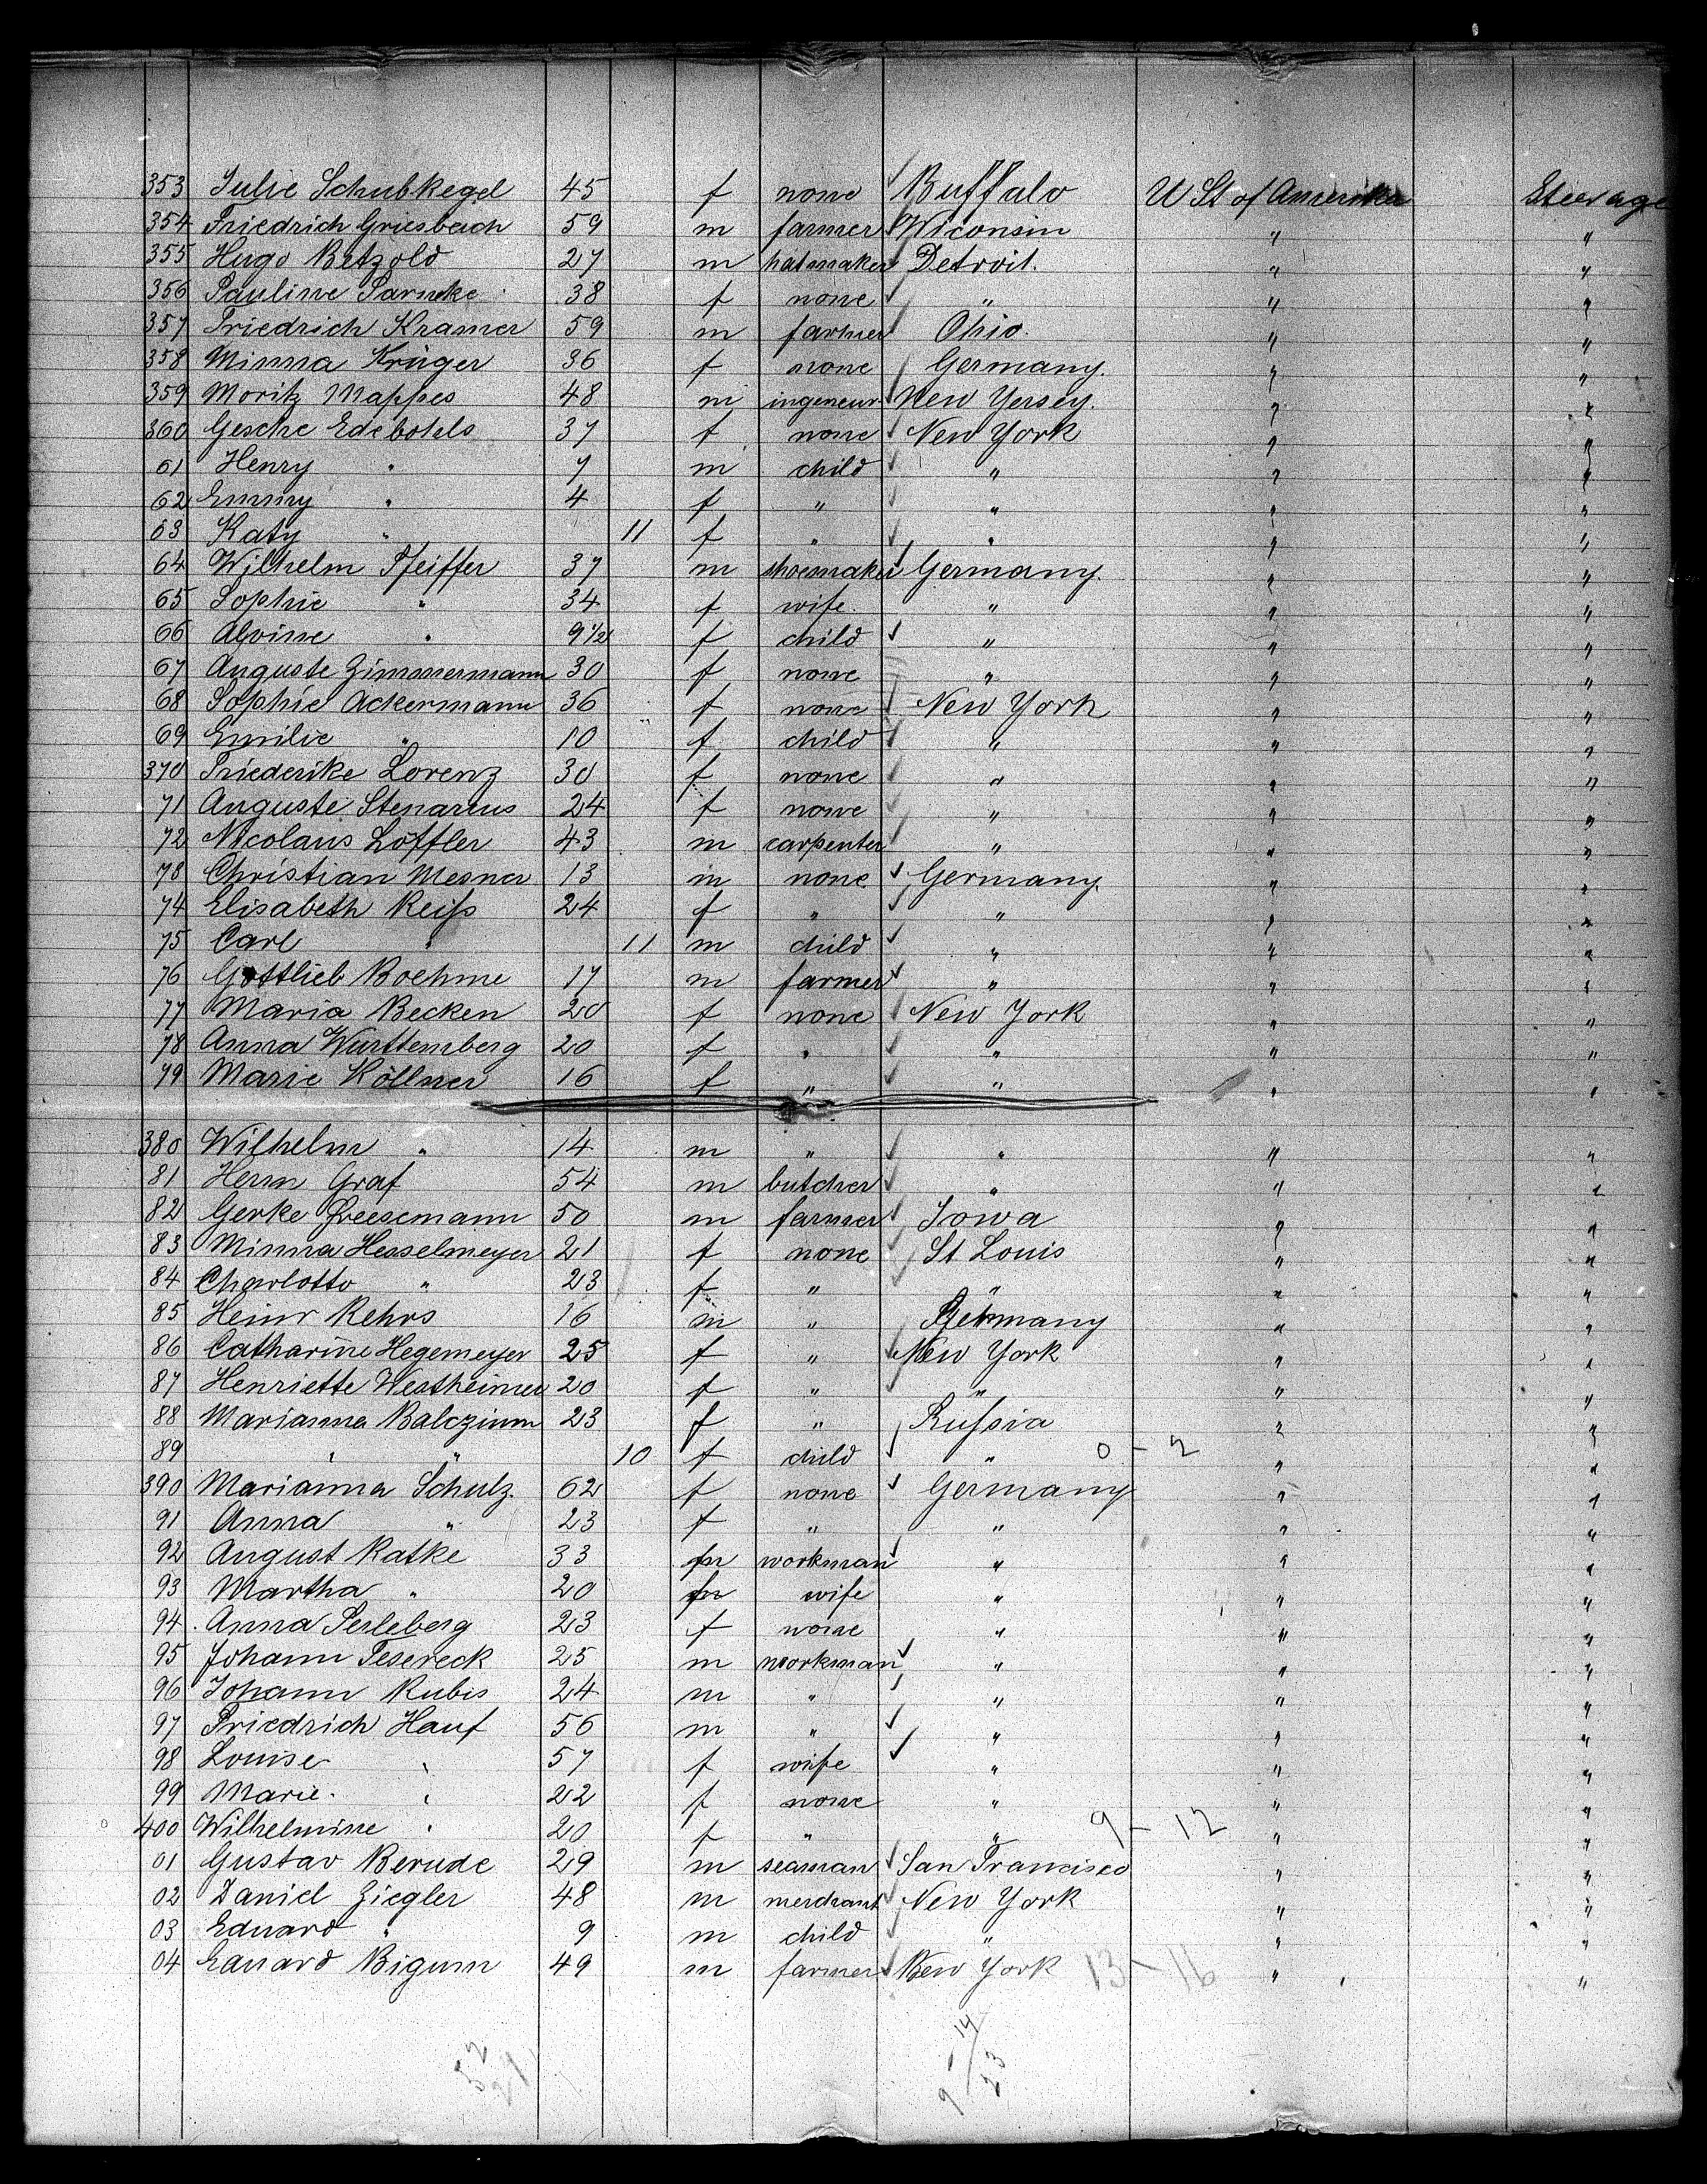 353 Julie Schubkegel 45 f none Buffalo U St of Amerika Steerage
354 Friedrich Griesbach 59 m farmer Wiconsin " "
355 Hugo Betzold 27 m hatmaker Detroit. " "
356 Pauline Parneke 38 f none " " "
357 Friedrich Kramer 59 m farmer Ohio. " "
358 Minna Krüger 36 f none Germany. " "
359 Moritz Mappes 48 m ingeneur New Yersey. " "
360 Gesche Edebohls 37 f none New York " "
61 Henry " 7 m child " " "
62 Emmy " 4 f " " " "
63 Katy " 11 f " " " "
64 Wilhelm Pfeiffer 37 m shoemaker Germany. " "
65 Sophie " 34 f wife. " " "
66 Alvine " 9 1/2 f child " " "
67 Auguste Zimmermann 30 f none " " "
68 Sophie Ackermann 36 f none New York " "
69 Emilie " 10 f child " " "
370 Friederike Lorenz 30 f none " " "
71 Auguste Stenarius 24 f none " " "
72 Nicolaus Löffler 43 m carpenter " " "
73 Christian Mesner 13 m none Germany. " "
74 Elisabeth Reiss 24 f " " " "
75 Carl " 11 m child " " "
76 Gottlieb Boehme 17 m farmer " " "
77 Maria Becken 20 f none New York " "
78 Anna Wurttemberg 20 f " " " "
79 Marie Köllner 16 f " " " "
380 Wilhelm " 14 m " " " "
81 Herm Graf 54 m butcher " " "
82 Gerke Dreesemann 50 m farmer Iowa " "
83 Minna Hesselmeyer 21 f none St Louis " "
84 Charlotto " 23 f " " " "
85 Heinr Rehrs 16 m " Germany " "
86 Catharine Hegemeyer 25 f " New York " "
87 Henriette Westheimer 20 f " " " "
88 Marianna Balczinm 23 f " Russia " "
89 " " 10 f child " 0 - 2 " "
390 Marianna Schulz. 62 f none Germany " "
91 Anna " 23 f " " " "
92 August Ratke 33 m workman " " "
93 Martha " 20 f wife " " "
94 Anna Perleberg 23 f none " " "
95 Johann Tesereck 25 m workman " " "
96 Johann Rubis 24 m " " " "
97 Friedrich Hauf 56 m " " " "
98 Louise " 57 f wife " " "
99 Marie. " 22 f none " " "
400 Wilhelmine " 20 f " " 9 - 12 " "
01 Gustav Berude 29 m seaman San Francisco " "
02 Daniel Ziegler 48 m merchant New York " "
03 Eduard " 9 m child " " "
04 Eduard Bigum 49 m farmer New York 13 - 16 " "
14
23